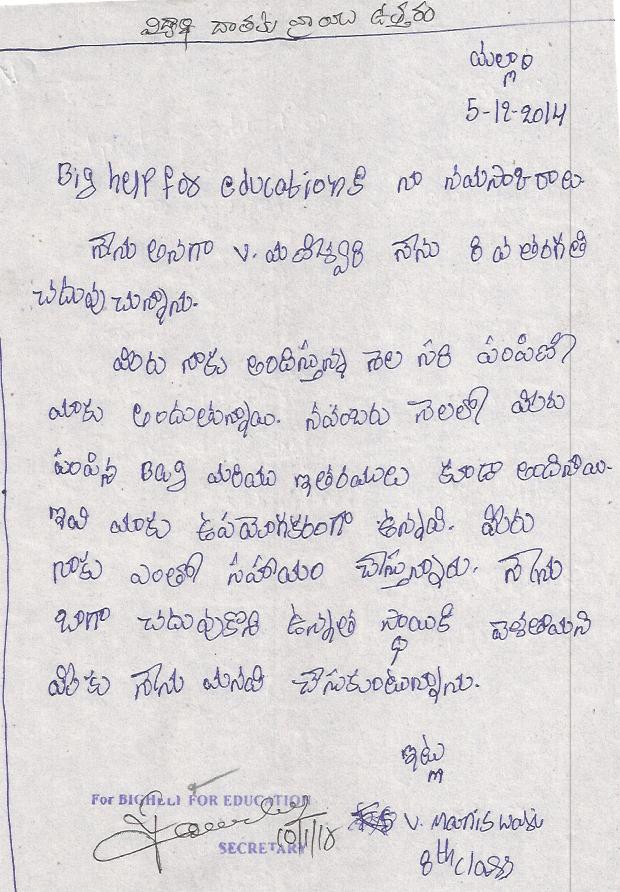 విద్యార్థి దాతకు వ్రాయు ఉత్తరం
యల్లాం
5-12-2014
Big help for educationకి నా నమస్కారాలు.
నేను అనగా V. మణీశ్వరి నేను 8 వ తరగతి
చదువు చున్నాను.
మీరు నాకు అందిస్తున్న నెల సరి పంపిణీ
మాకు అందుతున్నాయి. నవంబరు నెలలో మీరు
పంపిన Bag మరియు ఇతరములు కూడా అందినాయి.
ఇవి మాకు ఉపయోగకరంగా ఉన్నాయి. మీరు
నాకు ఎంతో సహాయం చేస్తున్నారు. నేను
బాగా చదువుకొని ఉన్నత స్థాయికి వెళతాయని
మీకు నేను మనవి చేసుకుంటున్నాను.
ఇట్లు
For BIGHELP FOR EDUCATION
V. Maniswari
10/1/15
SECRETARY
8th class